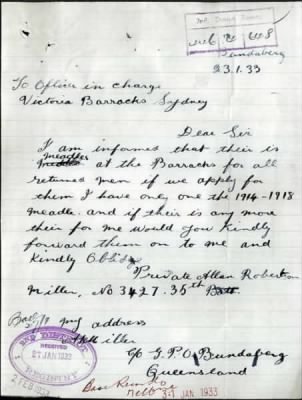 Bundaberg
23.1.33
To Officer in charge
Victoria Barracks, Sydney
Dear Sir
I am informed that their is
meadles
at the Barracks for all
returned men if we apply for
them I have only one the 1914-1918
meadle. and if their is any more
their for me would you Kindly
forward them on to me and
Kindly Oblidge
Private Allan Robertson
Miller, No 3427. 35th Batt
my address
A R Miller
c/o G.P.O Bundaberg
Queensland
RECEIVED
27 JAN 1933
REGISTRY
2 FEB
Base Records
Melbne
31 JAN 1933